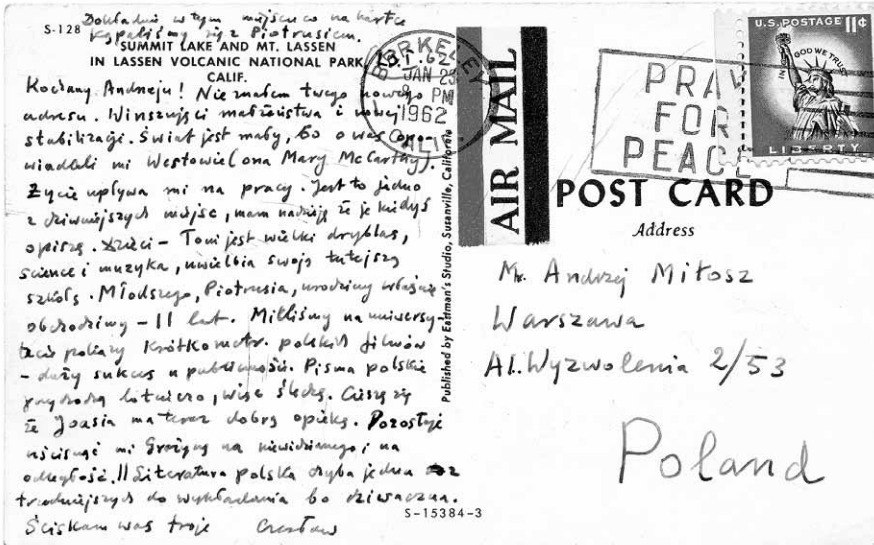 Dokładnie w tym miejscu co na kartce
kąpaliśmy się z Piotrusiem.
S-128
SUMMIT LAKE AND MT. LASSEN
IN LASSEN VOLCANIC NATIONAL PARK,
CALIF.
23.I.62
Kochany Andrzeju! Nie znałem twego nowego
adresu. Winszuję ci małżeństwa i nowej
stabilizacji. Świat jest mały, bo o was opo-
wiadali mi Westowie (ona Mary McCarthy).
Życie upływa mi na pracy. Jest to jedno
z dziwniejszych miejsc, mam nadzieję że je kiedyś
opiszę. Dzieci – Toni jest wielki dryblas,
science i muzyka, uwielbia swoją tutejszą
szkołę. Młodszego, Piotrusia, urodziny właśnie
obchodzimy – 11 lat. Mieliśmy na uniwersy-
tecie pokazy krótkometr. polskich filmów
– duży sukces u publiczności. Pisma polskie
przychodzą lotniczo, więc śledzę. Cieszę się
że Joasia ma teraz dobrą opiekę. Pozostaje
uścisnąć mi Grażynę na niewidzianego i na
odległość. || Literatura polska chyba jedna z
trudniejszych do wykładania bo dziwaczna.
Ściskam was troje Czesław
S-15384-3
Published by Eastman's Studio, Susanville, California
AIR MAIL
BERKELEY
JAN 23
PM
1962
CALIF.
PRAY
FOR
PEACE
U.S. POSTAGE 11¢
IN GOD WE TRUST
LIBERTY
POST CARD
Address
Mr. Andrzej Miłosz
Warszawa
Al. Wyzwolenia 2/53
Poland